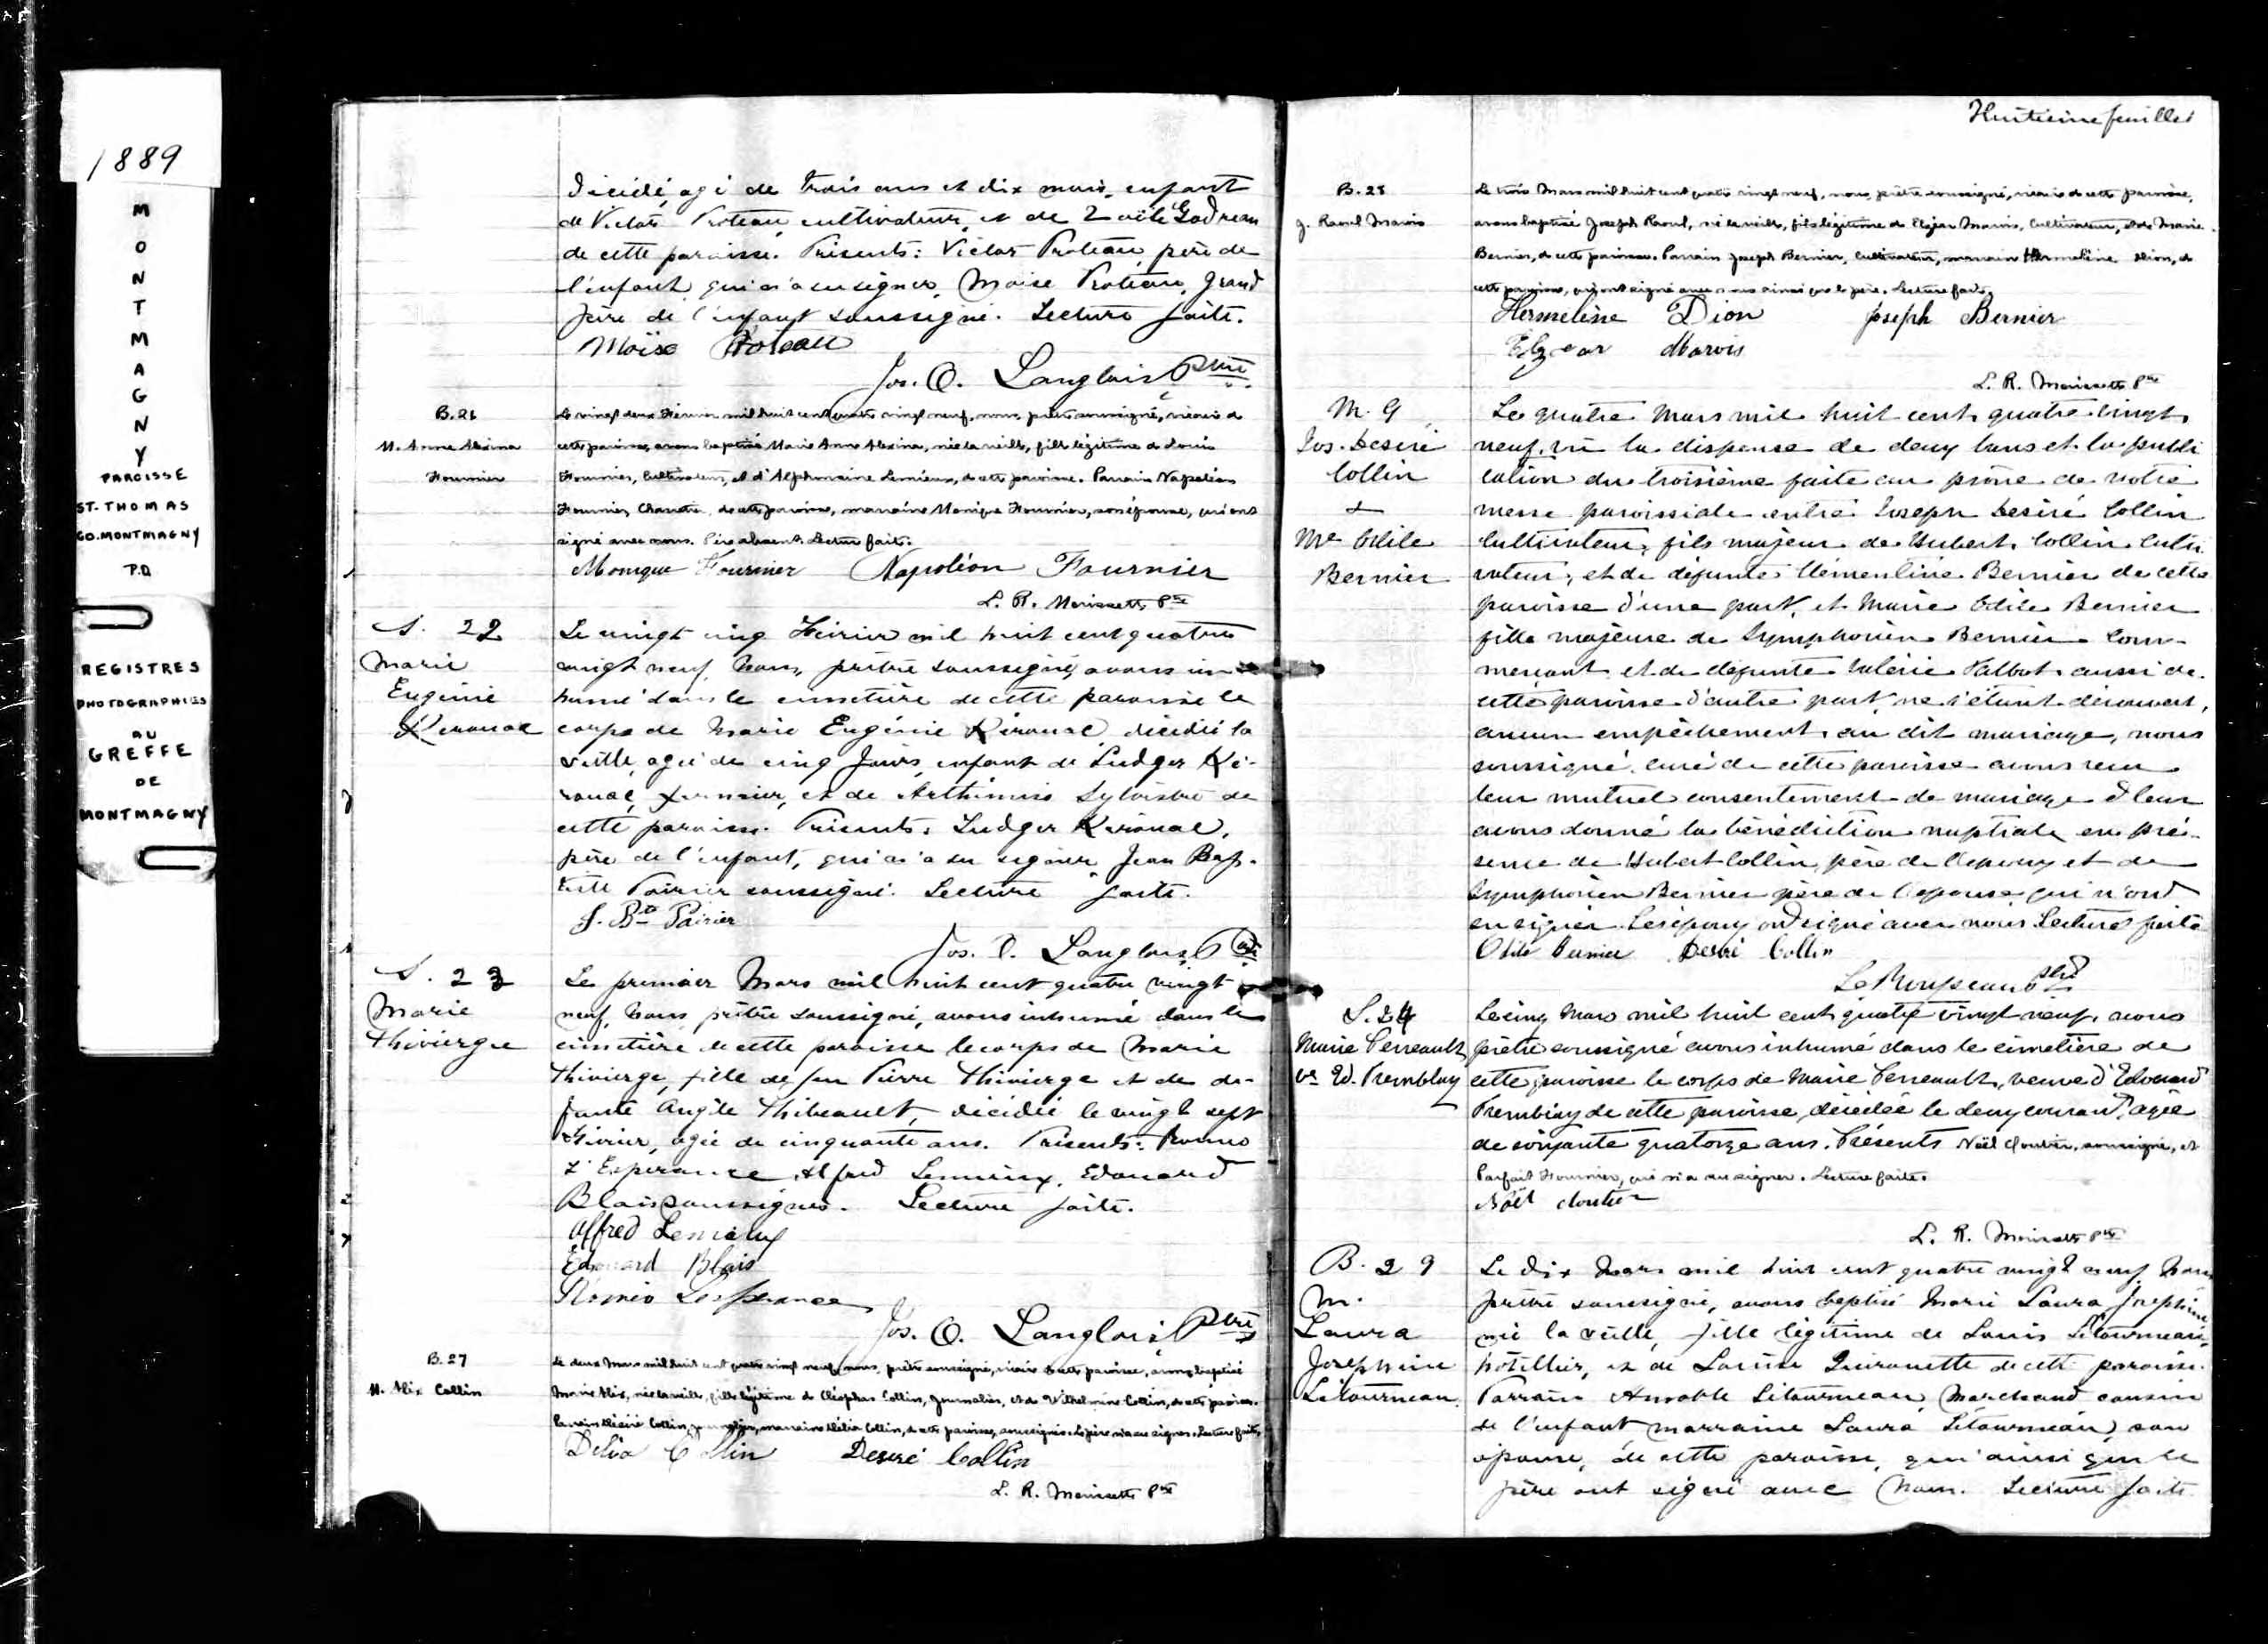 1889
MONTMAGNY
PAROISSE
ST. THOMAS
CO. MONTMAGNY
P.Q.
REGISTRES
PHOTOGRAPHIES
AU
GREFFE
DE
MONTMAGNY
décédé, agé de trois ans et dix mois, enfant
de Victor Proteau, cultivateur, et de Zoële Godreau
de cette paroisse. Présents: Victor Proteau, père de
l'enfant, qui n'a su signer, Moise Proteau, Grand
père de l'enfant soussigné. Lecture faite.
Moïse Proteau
Jos. O. Langlois Ptre
B. 26
M. Anne Alexina
Fournier
Le vingt deux Février mil huit cent quatre vingt neuf, nous, prêtre soussigné, vicaire de
cette paroisse, avons baptisé Marie Anne Alexina, née la veille, fille légitime de Louis
Fournier, Cultivateur, et d'Alphonsine Lemieux, de cette paroisse. Parrain Napoléon
Fournier, Chantre, de cette paroisse, marraine Monique Fournier, son épouse, qui ont
signé avec nous. Père absent. Lecture faite.
Monique Fournier Napoléon Fournier
L. R. Morissette Ptre
S. 22
Marie
Eugénie
Kérouac
Le vingt cinq Février mil huit cent quatre
vingt neuf, Nous, prêtre soussigné, avons in
humé dans le cimetière de cette paroisse le
corps de Marie Eugénie Kérouac, décédée la
veille, agée de cinq jours, enfant de Ludger Ké-
rouac, fermier, et de Arthémise Sylvestre de
cette paroisse. Présents: Ludger Kérouac,
père de l'enfant, qui n'a su signer, Jean Bap-
tiste Poirier soussigné. Lecture faite.
J. Bte Poirier
Jos. O. Langlois Ptre
S. 23
Marie
Thivierge
Le premier Mars mil huit cent quatre vingt
neuf, Nous prêtre soussigné, avons inhumé dans le
cimetière de cette paroisse le corps de Marie
Thivierge, fille de feu Pierre Thivierge et de dé-
funte Angèle Thibeault, décédée le vingt sept
Février, agée de cinquante ans. Présents: Roméo
L'Espérance, Alfred Lemieux, Edouard
Blais soussignés. Lecture faite.
Alfred Lemieux
Edouard Blais
Roméo Lespérance
Jos. O. Langlois, Ptre
B. 27
M. Alix Collin
Le deux Mars mil huit cent quatre vingt neuf, nous, prêtre soussigné, vicaire de cette paroisse, avons baptisé
Marie Alix, née la veille, fille légitime de Cléophas Collin, Journalier, et de Vilhelmine Collin, de cette paroisse.
Parrain Désiré Collin, marraine Délia Collin, de cette paroisse, soussignés. Le père n'a su signer. Lecture faite.
Delia Collin Desiré Collin
L. R. Morissette Ptre
Huitième feuillet
B. 28
J. Raoul Marois
Le trois Mars mil huit cent quatre vingt neuf, nous, prêtre soussigné, vicaire de cette paroisse,
avons baptisé Joseph Raoul, né la veille, fils légitime de Elzéar Marois, Cultivateur, et de Marie
Bernier, de cette paroisse. Parrain Joseph Bernier, Cultivateur, marraine Hermeline Dion, de
cette paroisse, qui ont signé avec nous ainsi que le père. Lecture faite.
Hermeline Dion Joseph Bernier
Elzear Marois
L. R. Morissette Ptre
M. 9
Jos. Desiré
Collin
&
Me Odile
Bernier
Le quatre Mars mil huit cent quatre vingt
neuf, vu la dispense de deux bans et la publi
cation du troisième faite au prône de notre
messe paroissiale entre Joseph Desiré Collin
Cultivateur, fils majeur de Hubert Collin Culti
vateur, et de défunte Clémentine Bernier de cette
paroisse d'une part, et Marie Odile Bernier
fille majeure de Symphorien Bernier Com-
merçant et de défunte Valérie Talbot, aussi de
cette paroisse d'autre part, ne s'étant découvert,
aucun empêchement au dit mariage, nous
soussigné, curé de cette paroisse avons reçu
leur mutuel consentement de mariage & leur
avons donné la bénédiction nuptiale en pré-
sence de Hubert Collin, père de l'époux et de
Symphorien Bernier père de l'épouse qui n'ont
su signer. Les époux ont signé avec nous. Lecture faite
Odile Bernier Desiré Collin
Ls Rousseau Ptre
S. 24
Marie Perreault
ve Ed. Tremblay
Le cinq Mars mil huit cent quatre vingt neuf, nous
prêtre soussigné avons inhumé dans le cimetière de
cette paroisse le corps de Marie Perreault, veuve d'Edouard
Tremblay de cette paroisse, décédée le deux courant, agée
de soixante quatorze ans. Présents Noël Cloutier, soussigné, et
Parfait Fournier, qui n'a su signer. Lecture faite.
Noël Cloutier
L. R. Morissette Ptre
B. 29
M.
Laura
Josephine
Létourneau
Le dix Mars mil huit cent quatre vingt neuf, Nous
prêtre soussigné, avons baptisé Marie Laura Josephine,
née la veille, fille légitime de Louis Létourneau,
hôtellier, et de Louise Guironette de cette paroisse.
Parrain Amable Létourneau, Marchand cousin
de l'enfant marraine Laura Létourneau, son
épouse, de cette paroisse, qui ainsi que le
père ont signé avec Nous. Lecture faite